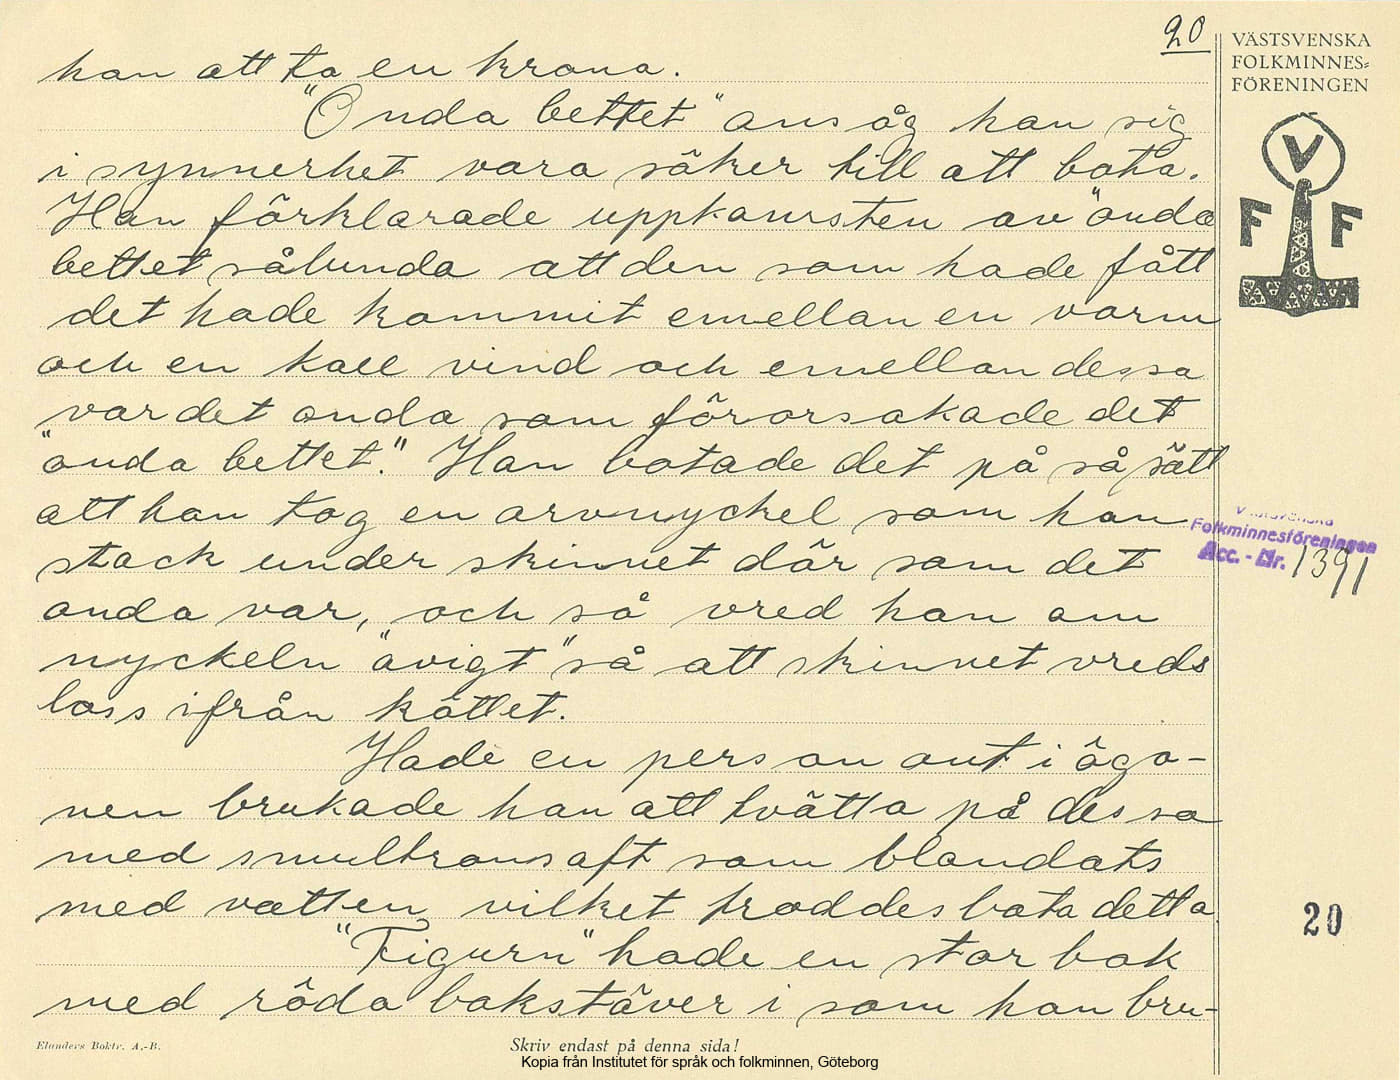 20
VÄSTSVENSKA
FOLKMINNES=
FÖRENINGEN
V
F F
han att ta en krona.
"Onda bettet" ansåg han sig
i synnerhet vara säker till att bota.
Han förklarade uppkomsten av "onda
bettet sålunda att den som hade fått
det hade kommit emellan en varm
och en kall vind och emellan dessa
var det onda som förorsakade det
"onda bettet." Han botade det på så sätt
att han tog en arvnyckel som han
stack under skinnet där som det
onda var, och så vred han om
nyckeln "avigt" så att skinnet vreds
loss ifrån köttet.
Hade en person ont i ögo-
nen brukade han att tvätta på dessa
med smultronsaft som blandats
med vatten, vilket troddes bota detta.
"Figurn" hade en stor bok
med röda bokstäver i som han bru-
Västsvenska
Folkminnesföreningen
Acc. - Nr. 1391
20
Elanders Boktr. A.-B.
Skriv endast på denna sida!
Kopia från Institutet för språk och folkminnen, Göteborg